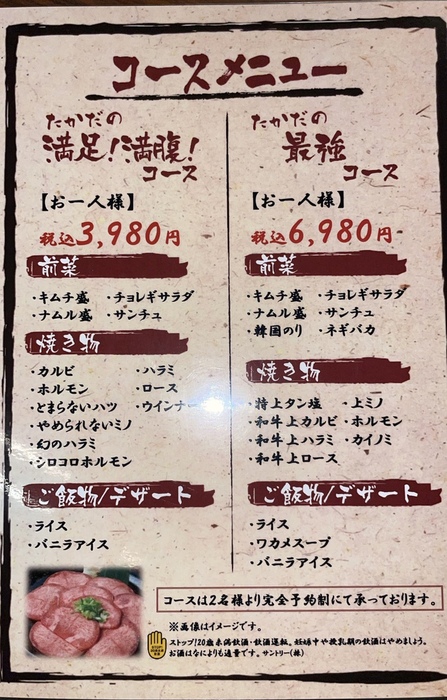 コースメニュー
たかだの
満足!満腹!
コース
【お一人様】
税込3,980円
前菜
・キムチ盛 ・チョレギサラダ
・ナムル盛 ・サンチュ
焼き物
・カルビ ・ハラミ
・ホルモン ・ロース
・とまらないハツ ・ウインナー
・やめられないミノ
・幻のハラミ
・シロコロホルモン
ご飯物/デザート
・ライス
・バニラアイス
たかだの
最強
コース
【お一人様】
税込6,980円
前菜
・キムチ盛 ・チョレギサラダ
・ナムル盛 ・サンチュ
・韓国のり ・ネギバカ
焼き物
・特上タン塩 ・上ミノ
・和牛上カルビ ・ホルモン
・和牛上ハラミ ・カイノミ
・和牛上ロース
ご飯物/デザート
・ライス
・ワカメスープ
・バニラアイス
コースは2名様より完全予約制にて承っております。
※画像はイメージです。
ストップ!20歳未満飲酒・飲酒運転。妊娠中や授乳期の飲酒はやめましょう。
お酒はなによりも適量です。サントリー(株)